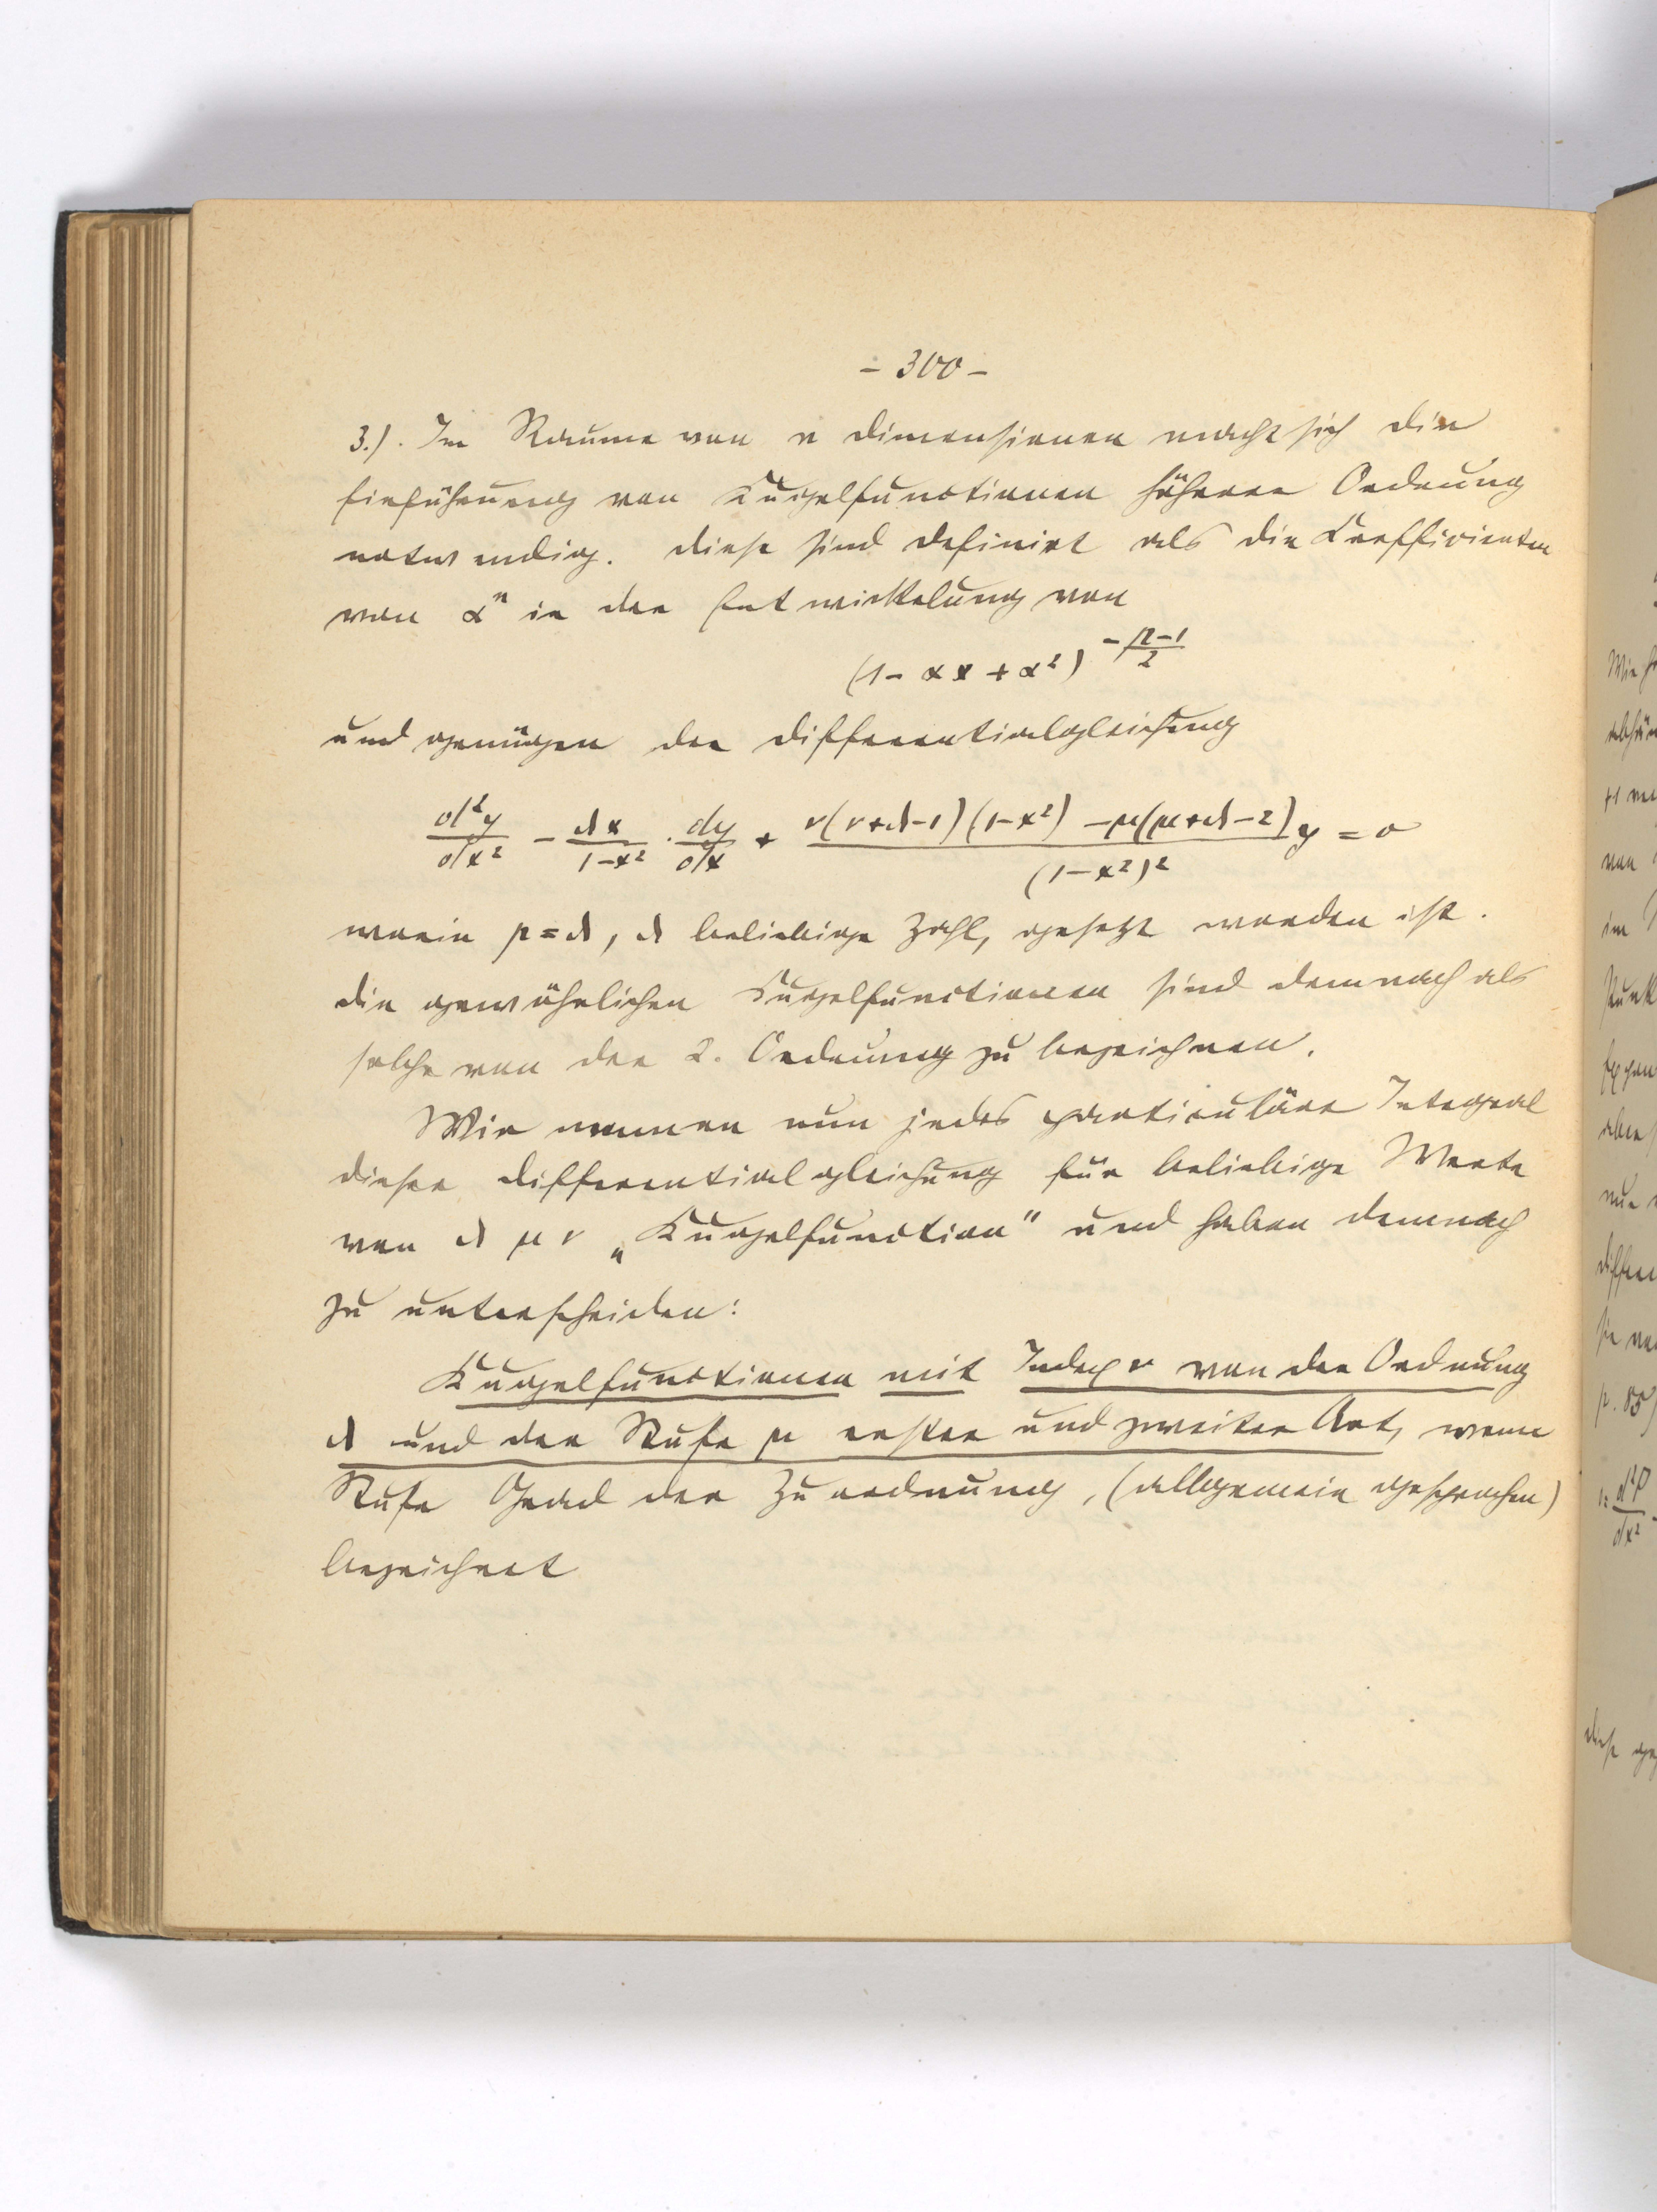 – 300 –
3.). Im Raume von n Dimensionen macht sich die
Einführung von Kugelfunctionen höherer Ordnung
notwendig. Diese sind definirt als die Coefficienten
von αⁿ in der Entwickelung von
(1 – αx + α²)^{–\frac{p–1}{2}}
und genügen der Differentialgleichung
\frac{d²y}{dx²} – \frac{λx}{1–x²} · \frac{dy}{dx} + \frac{ν(ν+λ–1)(1–x²) – μ(μ+λ–2)}{(1–x²)²} y = 0
worin p = λ, λ beliebige Zahl, gesetzt worden ist.
Die gewöhnlichen Kugelfunctionen sind demnach als
solche von der 2. Ordnung zu bezeichnen.
Wir nennen nun jedes particuläre Integral
dieser Differentialgleichung für beliebige Werte
von λ μ ν „Kugelfunction" und haben demnach
zu unterscheiden:
Kugelfunctionen mit Index ν von der Ordnung
λ und der Stufe μ erster und zweiter Art, wenn
Stufe Grad der Zuordnung, (allgemein gesprochen)
bezeichnet